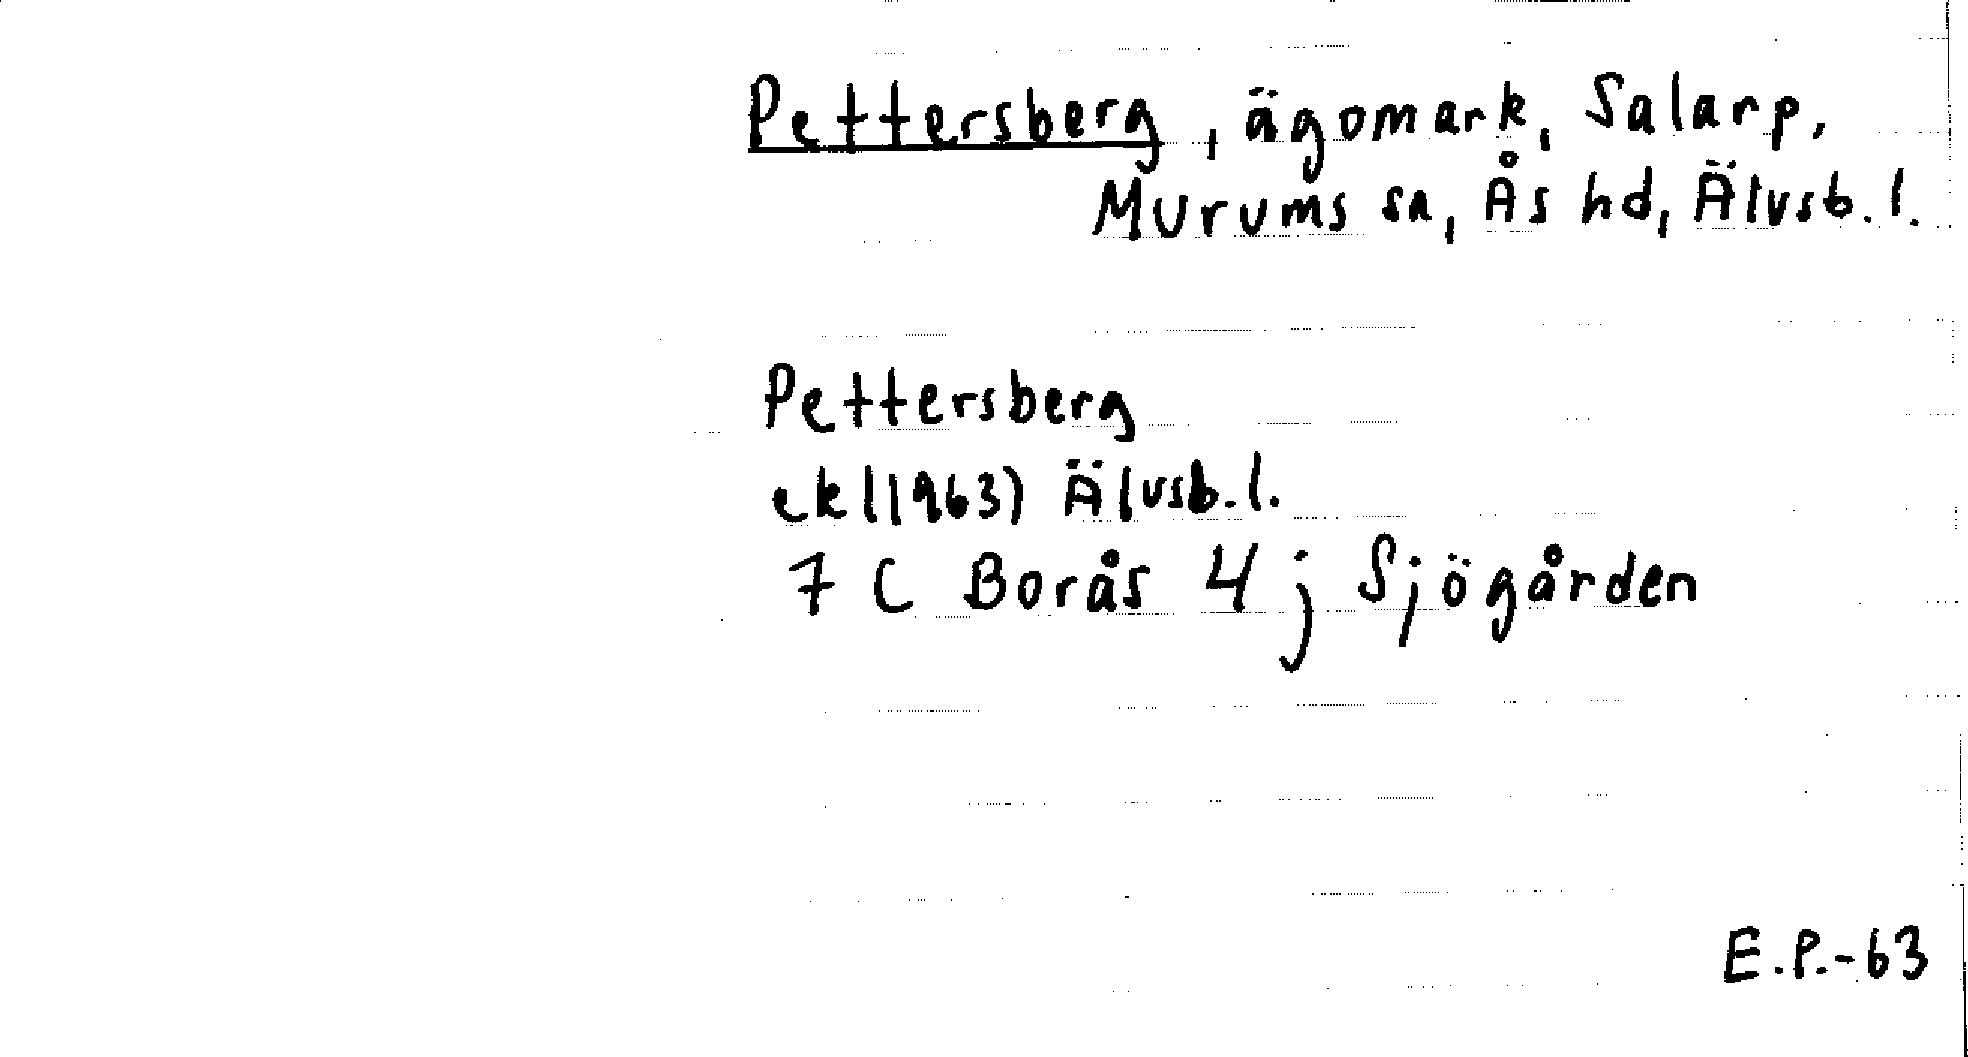 Pettersberg, ägomark, Salarp,
Murums sn, Ås hd, Älvsb. l.
Pettersberg
ek(1963) Älvsb. l.
7 C Borås 4 j Sjögården
E.P.-63